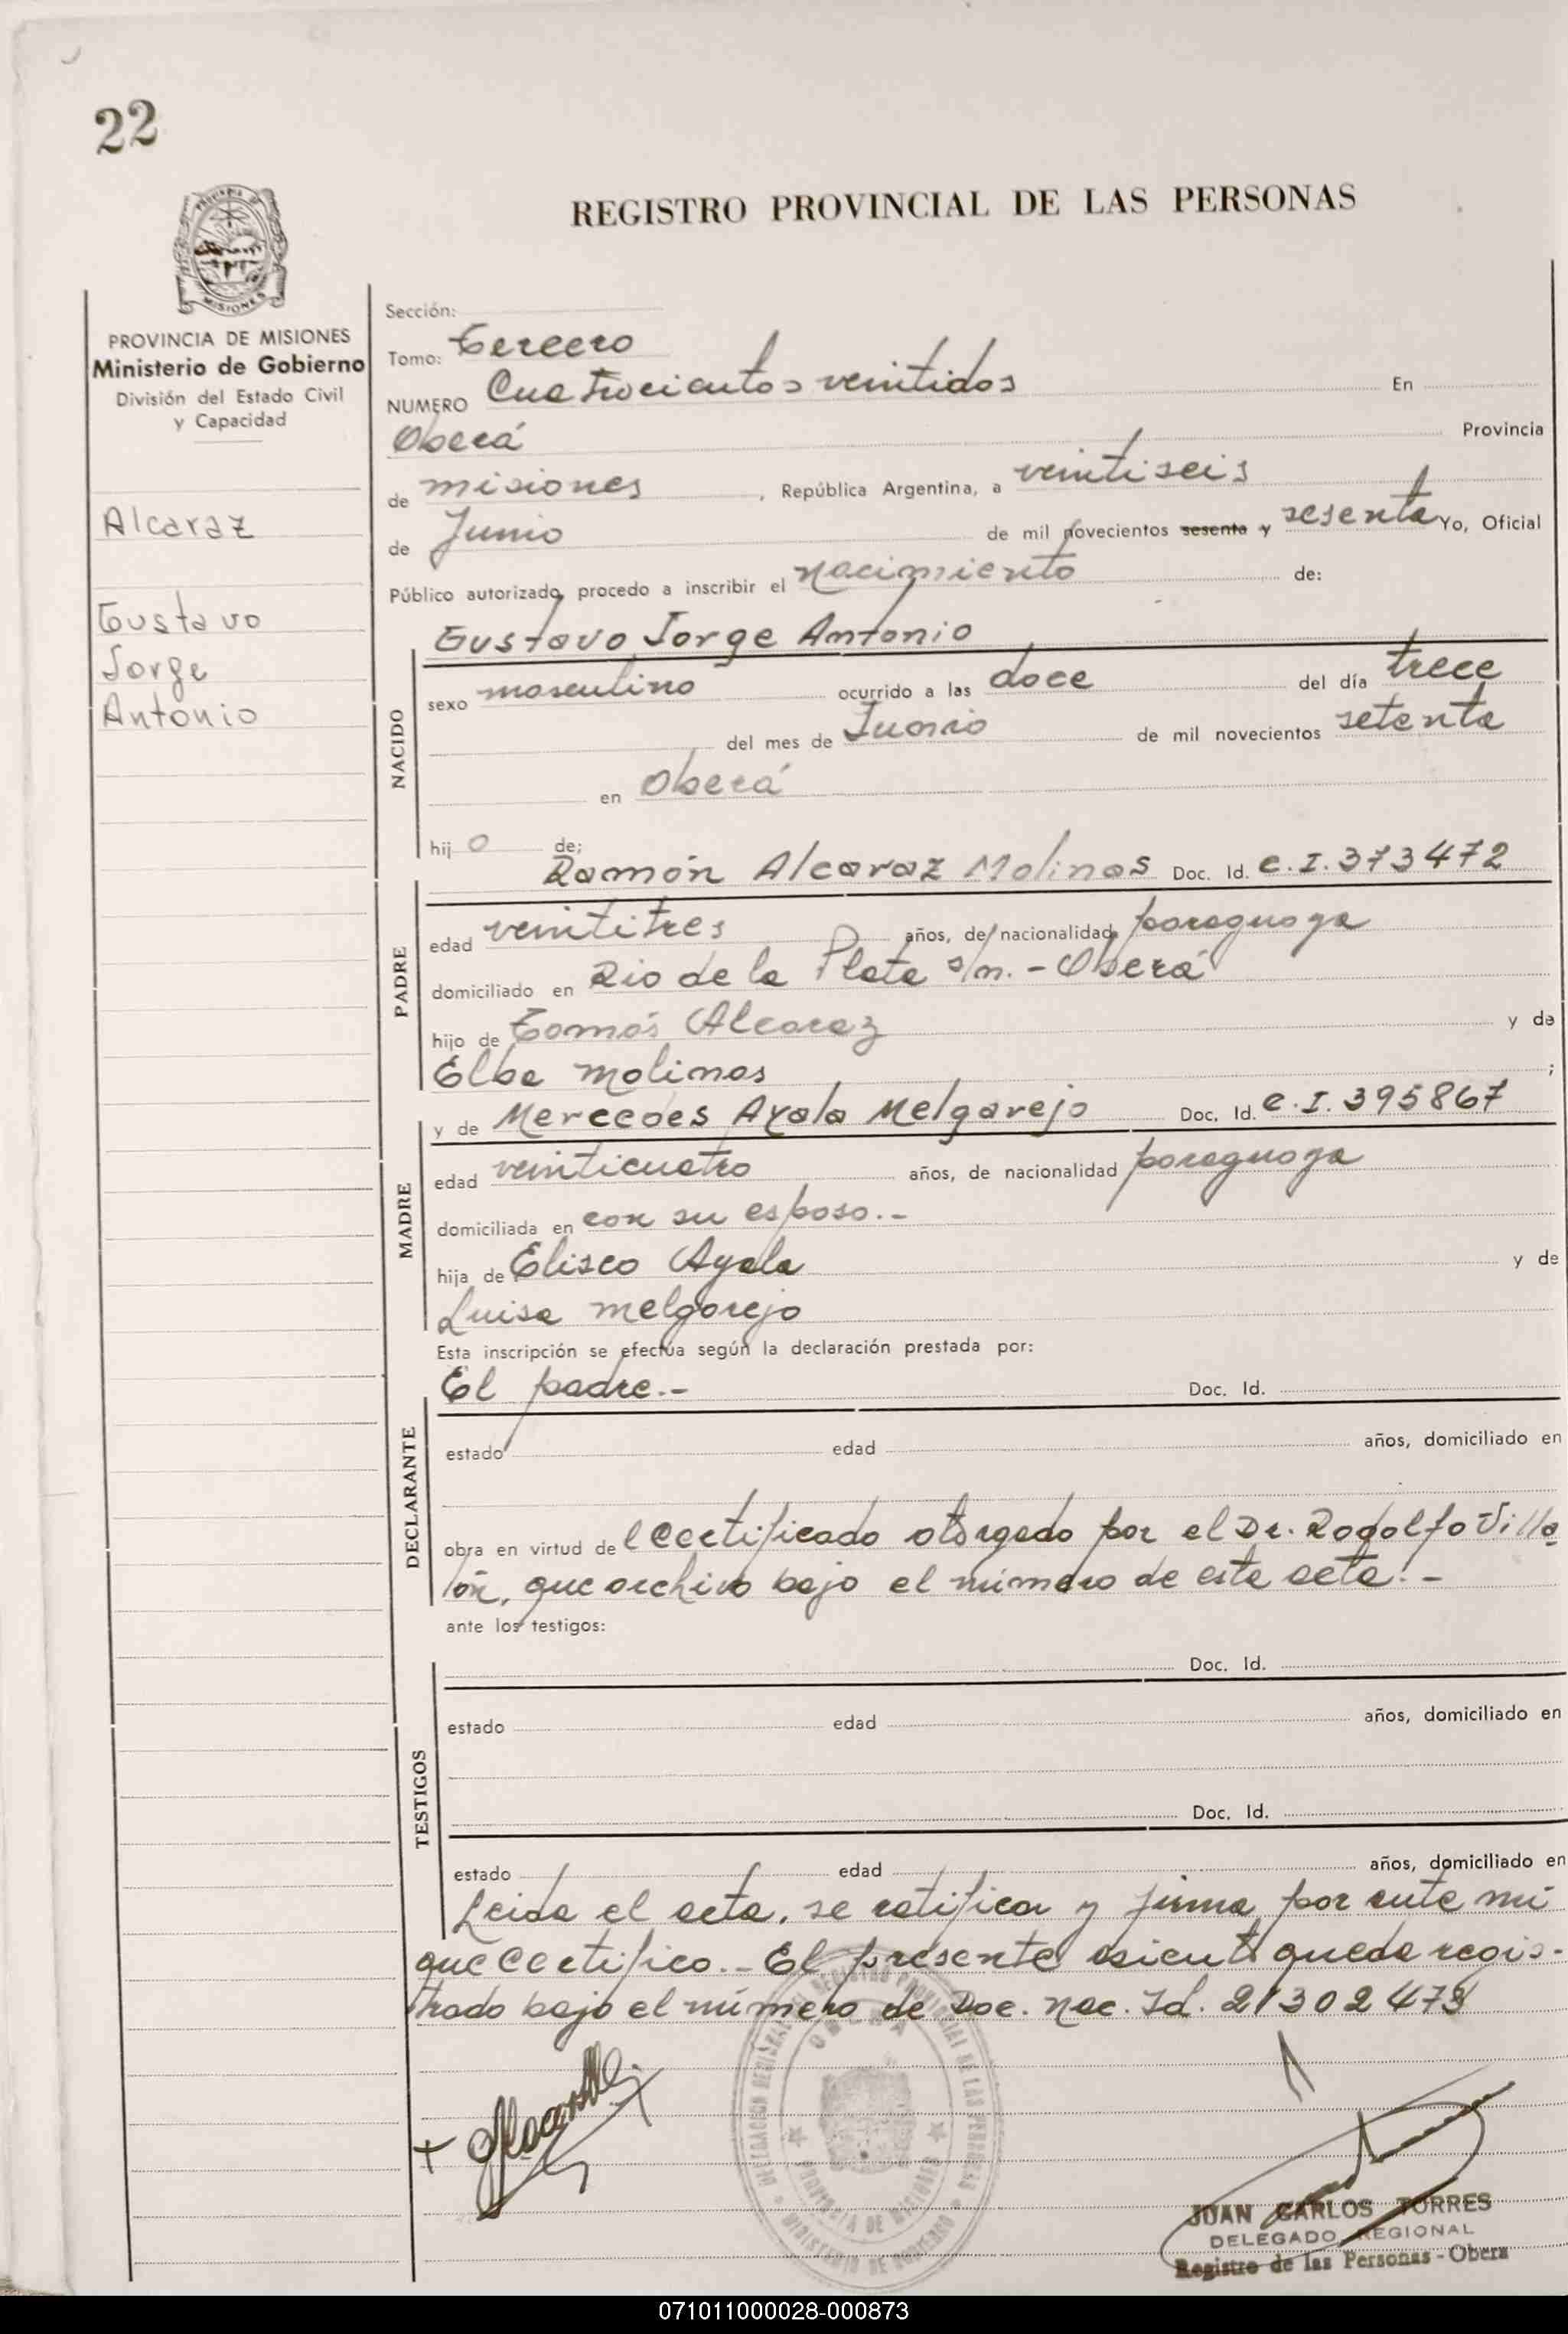 22
REGISTRO PROVINCIAL DE LAS PERSONAS
PROVINCIA DE MISIONES
Ministerio de Gobierno
División del Estado Civil
y Capacidad
Alcaraz
Gustavo
Jorge
Antonio
Sección:
Tomo: Tercero
NUMERO Cuatrocientos veintidos En
Oberá Provincia
de misiones, República Argentina, a veintiseis
de Junio de mil novecientos sesenta y sesenta Yo, Oficial
Público autorizado, procedo a inscribir el nacimiento de:
Gustavo Jorge Antonio
NACIDO
sexo masculino ocurrido a las doce del día trece
del mes de Junio de mil novecientos setenta
en Oberá
hijo de:
Ramón Alcaraz Molinas Doc. Id. C.I. 373472
PADRE
edad veintitres años, de nacionalidad paraguaya
domiciliado en Rio de la Plata s/n. - Oberá
hijo de Tomás Alcaraz y de
Elba Molinas ;
y de Mercedes Ayala Melgarejo Doc. Id. C.I. 395867
MADRE
edad veinticuatro años, de nacionalidad paraguaya
domiciliada en con su esposo.-
hija de Eliseo Ayala y de
Luisa Melgarejo
Esta inscripción se efectúa según la declaración prestada por:
El padre.- Doc. Id.
DECLARANTE
estado edad años, domiciliado en
obra en virtud del certificado otorgado por el Dr. Rodolfo Villa
lón, que archivo bajo el número de esta acta.-
ante los testigos:
TESTIGOS
Doc. Id.
estado edad años, domiciliado en
Doc. Id.
estado edad años, domiciliado en
Leida el acta, se ratifica y firma por ante mi
que certifico.- El presente asiento queda regis-
trado bajo el número de Doc. Nac. Id.
JUAN CARLOS TORRES
DELEGADO REGIONAL
Registro de las Personas - Obera
071011000028-000873